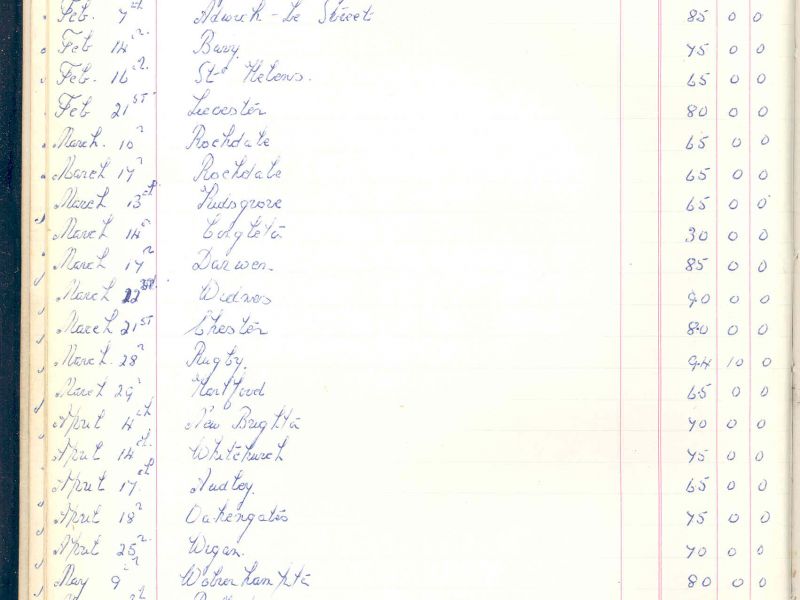 Feb 7th Adwick-Le Street 85 0 0
Feb 14th Bury 75 0 0
Feb. 16th St Helens. 65 0 0
Feb 21st Leicester 80 0 0
March. 10th Rochdale 65 0 0
March 17th Rochdale 65 0 0
March 13th Kidsgrove 65 0 0
March 14th Congleton 30 0 0
March 17th Darwen. 85 0 0
March Widnes 90 0 0
March 21st Chester 80 0 0
March. 28th Rugby. 94 10 0
March 29th Hartford 65 0 0
April 4th New Brighton 70 0 0
April 14th. Whitchurch 75 0 0
April 17th Audley. 65 0 0
April 18th Oakengates 75 0 0
April 25th. Wigan. 70 0 0
May 9th Wolverhampton 80 0 0